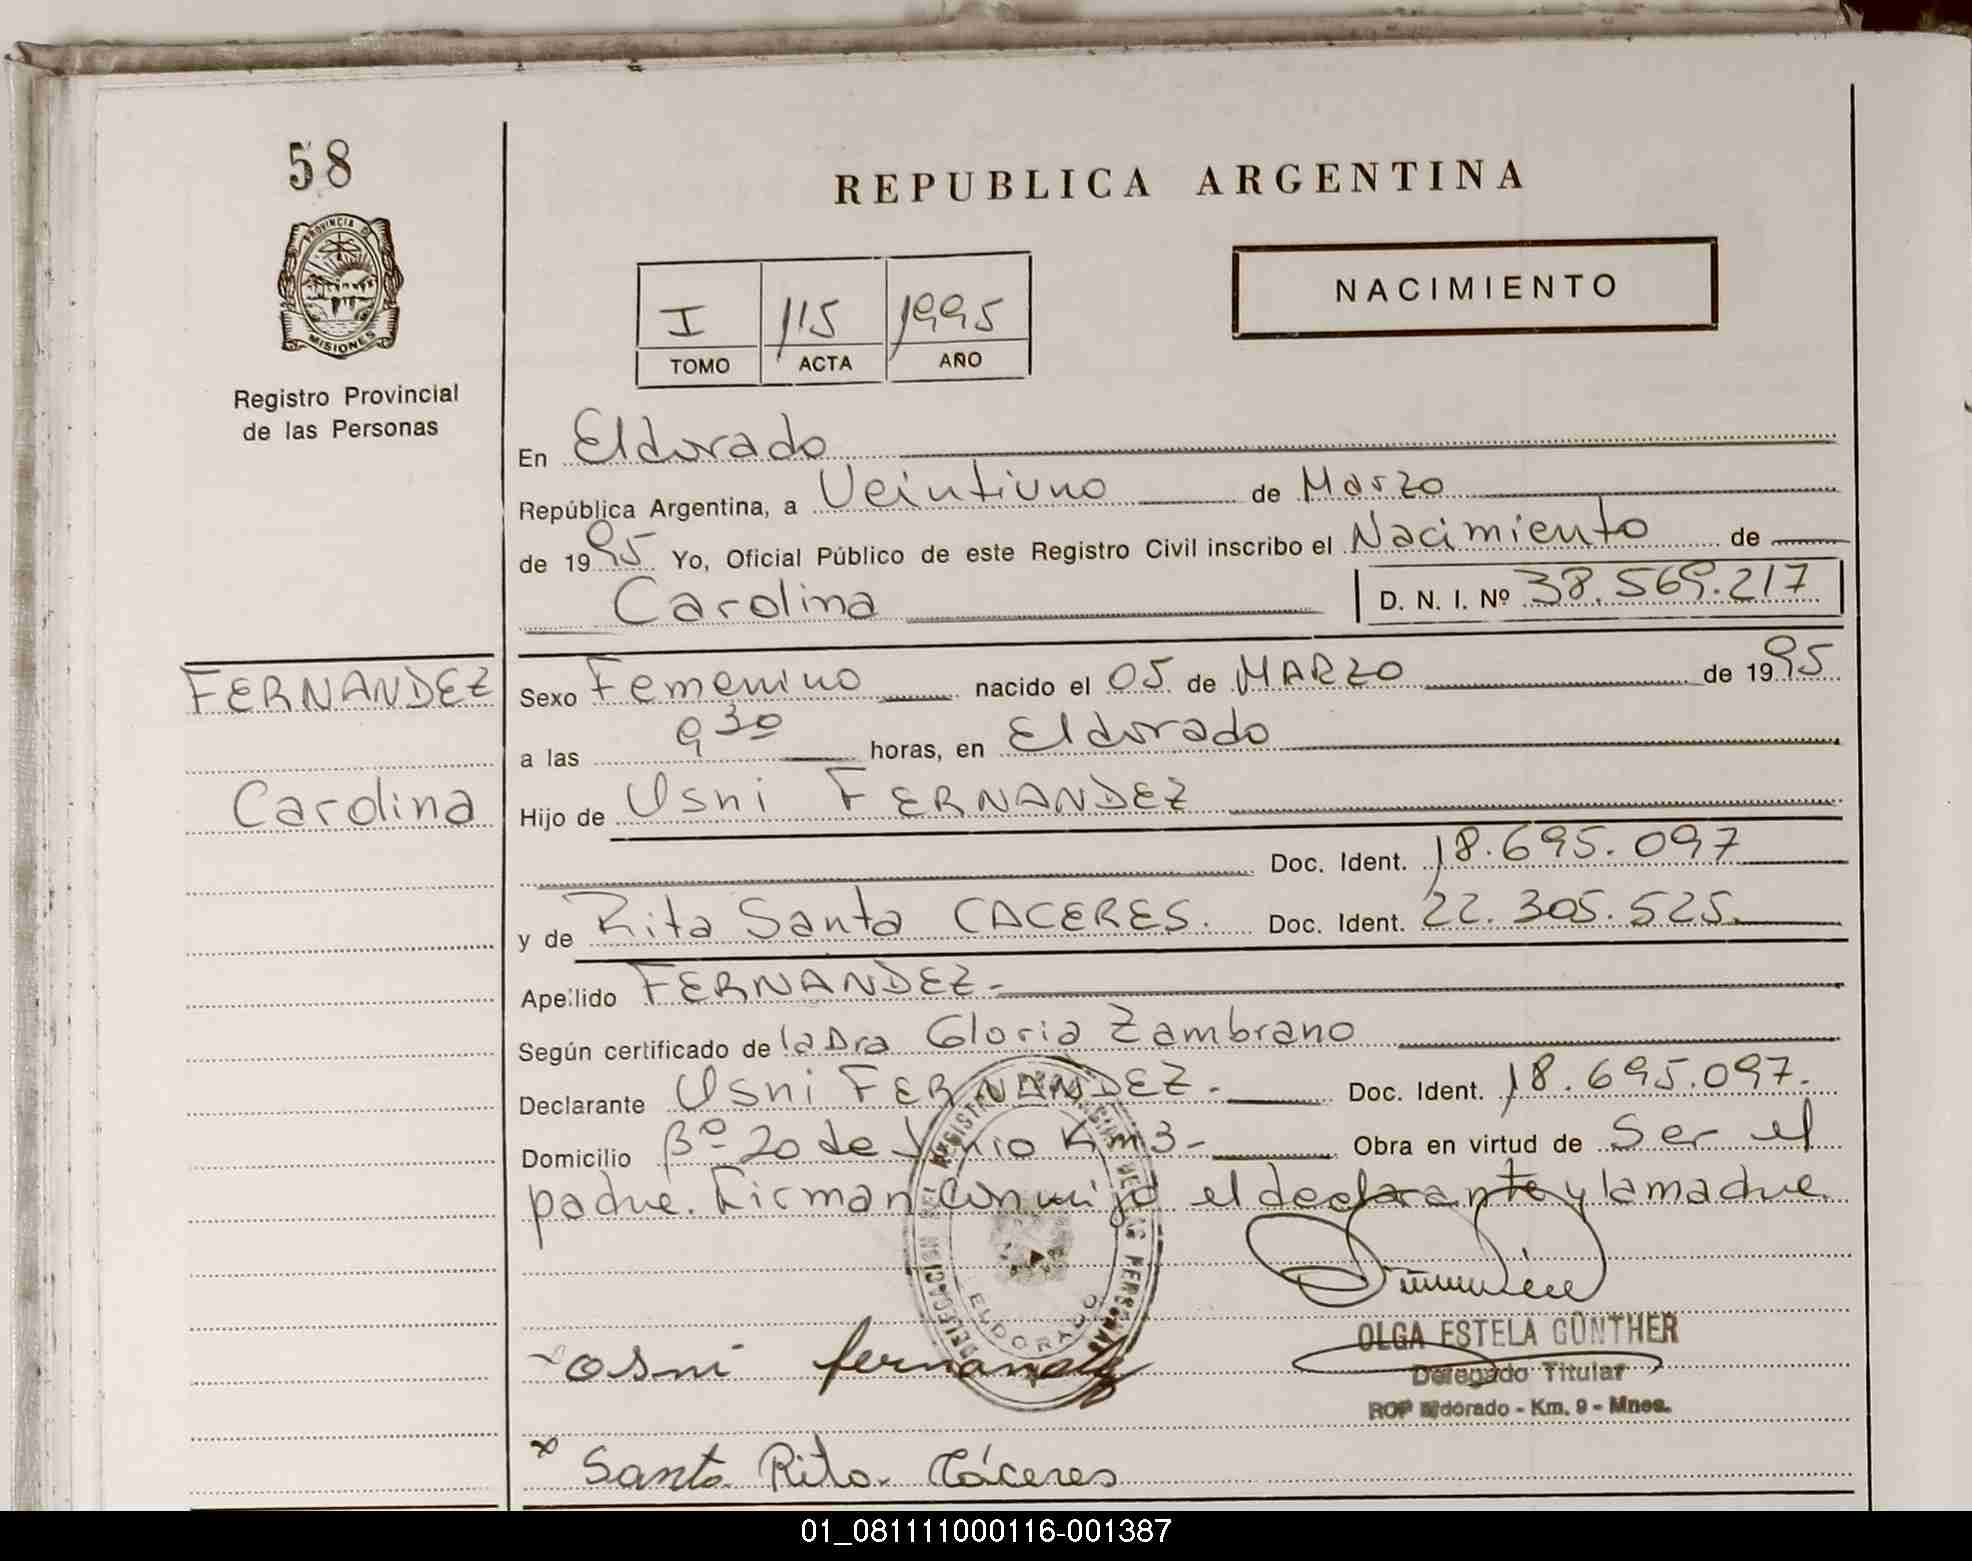 58
REPUBLICA ARGENTINA
PROVINCIA DE
MISIONES
Registro Provincial
de las Personas
I 115 1995
TOMO ACTA AÑO
NACIMIENTO
En Eldorado
República Argentina, a Veintiuno de Marzo
de 1995 Yo, Oficial Público de este Registro Civil inscribo el Nacimiento de
Carolina D. N. I. Nº 38.569.217
FERNANDEZ
Carolina
Sexo Femenino nacido el 05 de MARZO de 1995
a las 9 30 horas, en Eldorado
Hijo de Osni FERNANDEZ
Doc. Ident. 18.695.097
y de Rita Santa CACERES. Doc. Ident. 22.305.525.
Apellido FERNANDEZ-
Según certificado de la Dra Gloria Zambrano
Declarante Osni FERNANDEZ. Doc. Ident. 18.695.097.
Domicilio Bº 20 de Junio Km 3- Obra en virtud de Ser el
padre. Firman conmigo el declarante y la madre.
ELDORADO
OLGA ESTELA GÜNTHER
Delegado Titular
RCP Eldorado - Km. 9 - Mnes.
x osni fernandez
x Santa Rita Cáceres
01_081111000116-001387